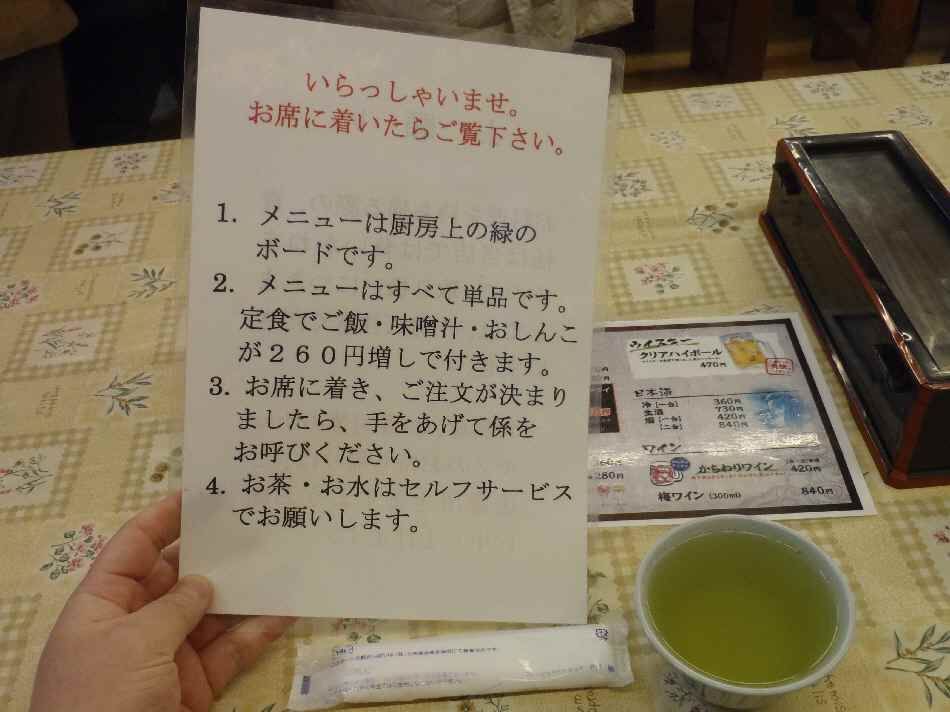 いらっしゃいませ。
お席に着いたらご覧下さい。
1. メニューは厨房上の緑の
ボードです。
2. メニューはすべて単品です。
定食でご飯・味噌汁・おしんこ
が２６０円増しで付きます。
3. お席に着き、ご注文が決まり
ましたら、手をあげて係を
お呼びください。
4. お茶・お水はセルフサービス
でお願いします。
ウイスキー
クリアハイボール
470円
日本酒
冷 [一合] 360円
生酒 730円
燗 [一合] 420円
[二合] 840円
ワイン
280円
からわりワイン 420円
梅ワイン (300ml) 840円